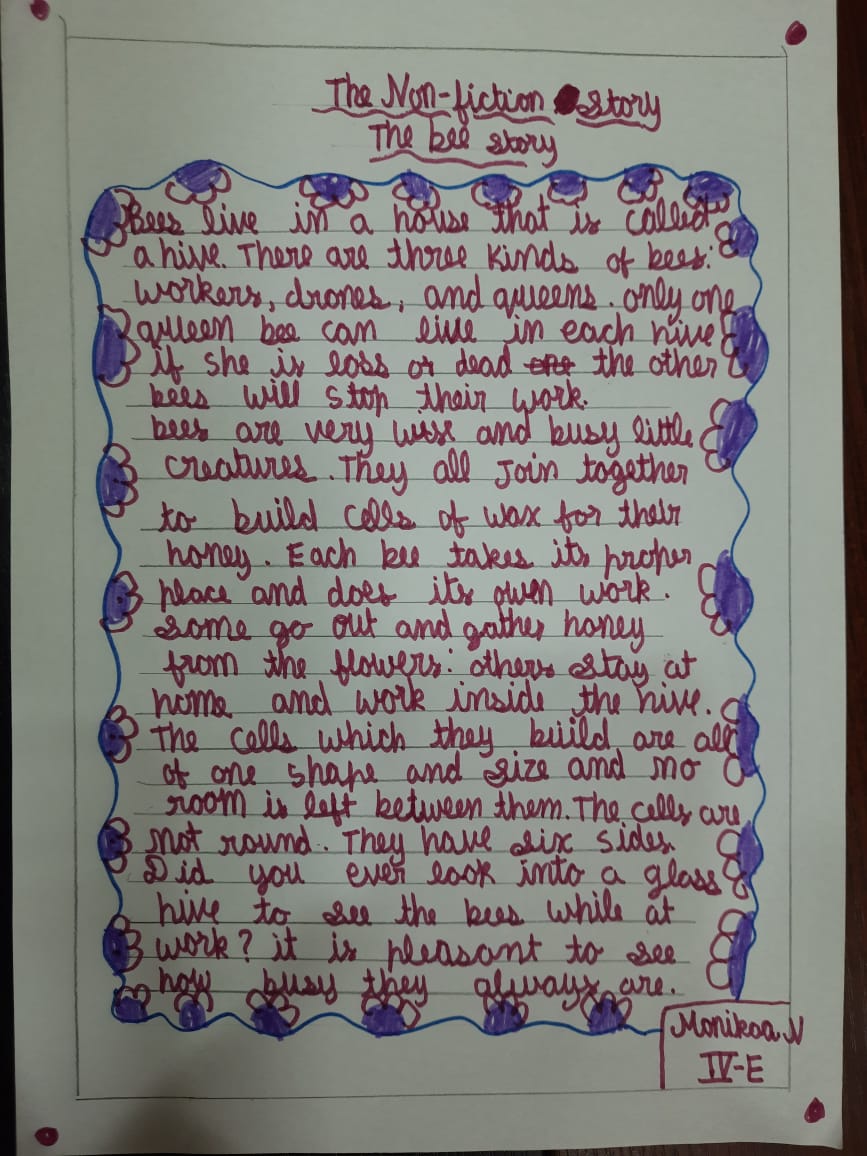 The Non-fiction story
The bee story
Bees live in a house that is called
a hive. There are three kinds of bees:
workers, drones, and queens. only one
queen bee can live in each hive
if she is loss or dead one the other
bees will stop their work.
bees are very wise and busy little
creatures. They all Join together
to build cells of wax for their
honey. Each bee takes its proper
place and does its own work.
some go out and gather honey
from the flowers: others stay at
home and work inside the hive.
The cells which they build are all
of one shape and size and no
room is left between them. The cells are
not round. They have six sides.
Did you ever look into a glass
hive to see the bees while at
work? it is pleasant to see
how busy they always are.
Monikaa N
IV-E